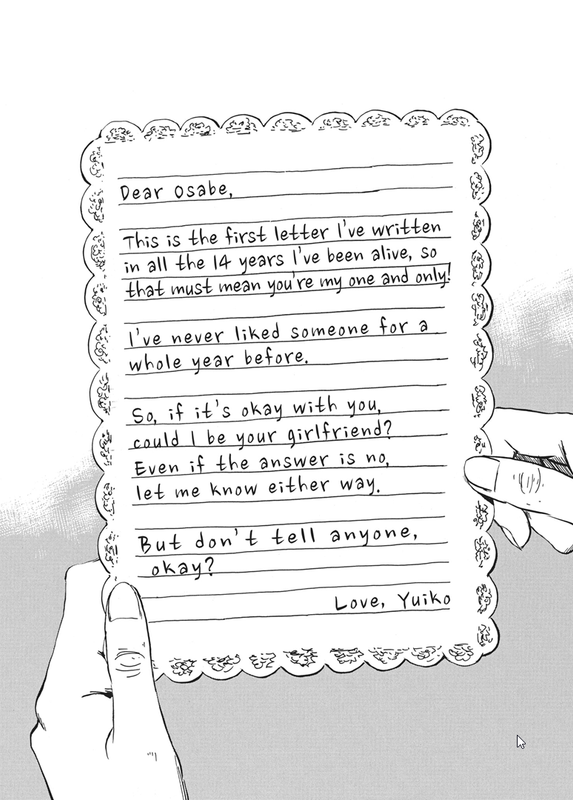 Dear Osabe,
This is the first letter I've written
in all the 14 years I've been alive, so
that must mean you're my one and only!
I've never liked someone for a
whole year before.
So, if it's okay with you,
could I be your girlfriend?
Even if the answer is no,
let me know either way.
But don't tell anyone,
okay?
Love, Yuiko